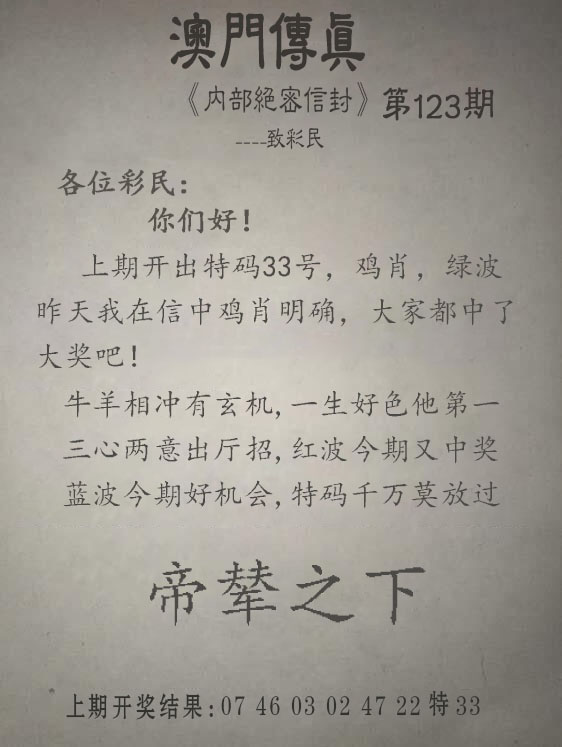 澳門傳眞
《内部絕密信封》第123期
----致彩民
各位彩民:
你们好!
上期开出特码33号，鸡肖，绿波
昨天我在信中鸡肖明确，大家都中了
大奖吧!
牛羊相冲有玄机,一生好色他第一
三心两意出厅招,红波今期又中奖
蓝波今期好机会,特码千万莫放过
帝辇之下
上期开奖结果:07 46 03 02 47 22 特 33